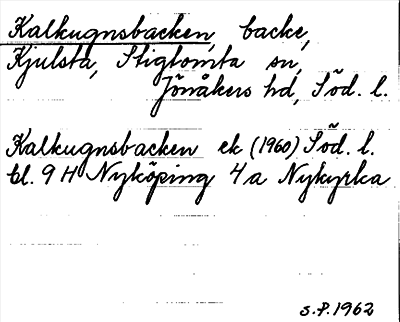 Kalkugnsbacken, backe,
Kjulsta, Stigtomta sn,
Jönåkers hd, Söd. l.
Kalkugnsbacken ek (1960) Söd. l.
bl. 9 H Nyköping 4 a Nykyrka
S.P. 1962